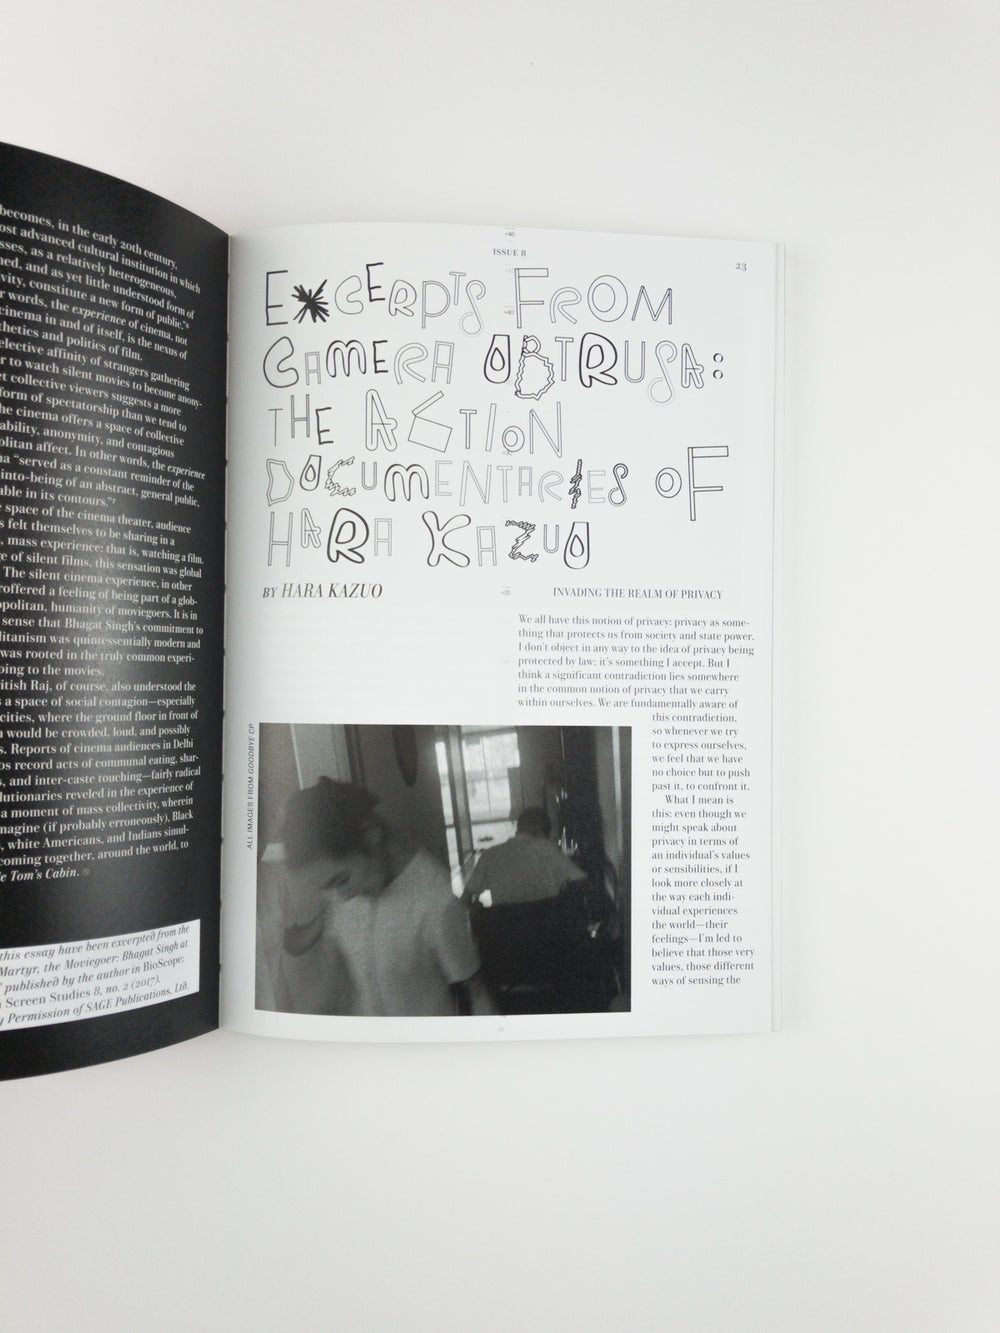 becomes, in the early 20th century,
ost advanced cultural institution in which
sses, as a relatively heterogeneous,
ned, and as yet little understood form of
vity, constitute a new form of public."6
r words, the experience of cinema, not
cinema in and of itself, is the nexus of
thetics and politics of film.
elective affinity of strangers gathering
r to watch silent movies to become anony-
et collective viewers suggests a more
form of spectatorship than we tend to
he cinema offers a space of collective
ability, anonymity, and contagious
olitan affect. In other words, the experience
na "served as a constant reminder of the
into-being of an abstract, general public,
able in its contours."7
e space of the cinema theater, audience
s felt themselves to be sharing in a
, mass experience: that is, watching a film.
ge of silent films, this sensation was global
The silent cinema experience, in other
offered a feeling of being part of a glob-
opolitan, humanity of moviegoers. It is in
sense that Bhagat Singh's commitment to
litanism was quintessentially modern and
was rooted in the truly common experi-
oing to the movies.
itish Raj, of course, also understood the
s a space of social contagion—especially
cities, where the ground floor in front of
n would be crowded, loud, and possibly
s. Reports of cinema audiences in Delhi
os record acts of communal eating, shar-
s, and inter-caste touching—fairly radical
lutionaries reveled in the experience of
a moment of mass collectivity, wherein
magine (if probably erroneously), Black
, white Americans, and Indians simul-
coming together, around the world, to
le Tom's Cabin.
this essay have been excerpted from the
Martyr, the Moviegoer: Bhagat Singh at
" published by the author in BioScope:
n Screen Studies 8, no. 2 (2017).
y Permission of SAGE Publications, Ltd.
ISSUE 8
23
EXCERPTS FROM
CAMERA OBTRUSA:
THE ACTION
DOCUMENTARIES OF
HARA KAZUO
BY HARA KAZUO
INVADING THE REALM OF PRIVACY
We all have this notion of privacy: privacy as some-
thing that protects us from society and state power.
I don't object in any way to the idea of privacy being
protected by law; it's something I accept. But I
think a significant contradiction lies somewhere
in the common notion of privacy that we carry
within ourselves. We are fundamentally aware of
this contradiction,
so whenever we try
to express ourselves,
we feel that we have
no choice but to push
past it, to confront it.
What I mean is
this: even though we
might speak about
privacy in terms of
an individual's values
or sensibilities, if I
look more closely at
the way each indi-
vidual experiences
the world—their
feelings—I'm led to
believe that those very
values, those different
ways of sensing the
ALL IMAGES FROM GOODBYE CP